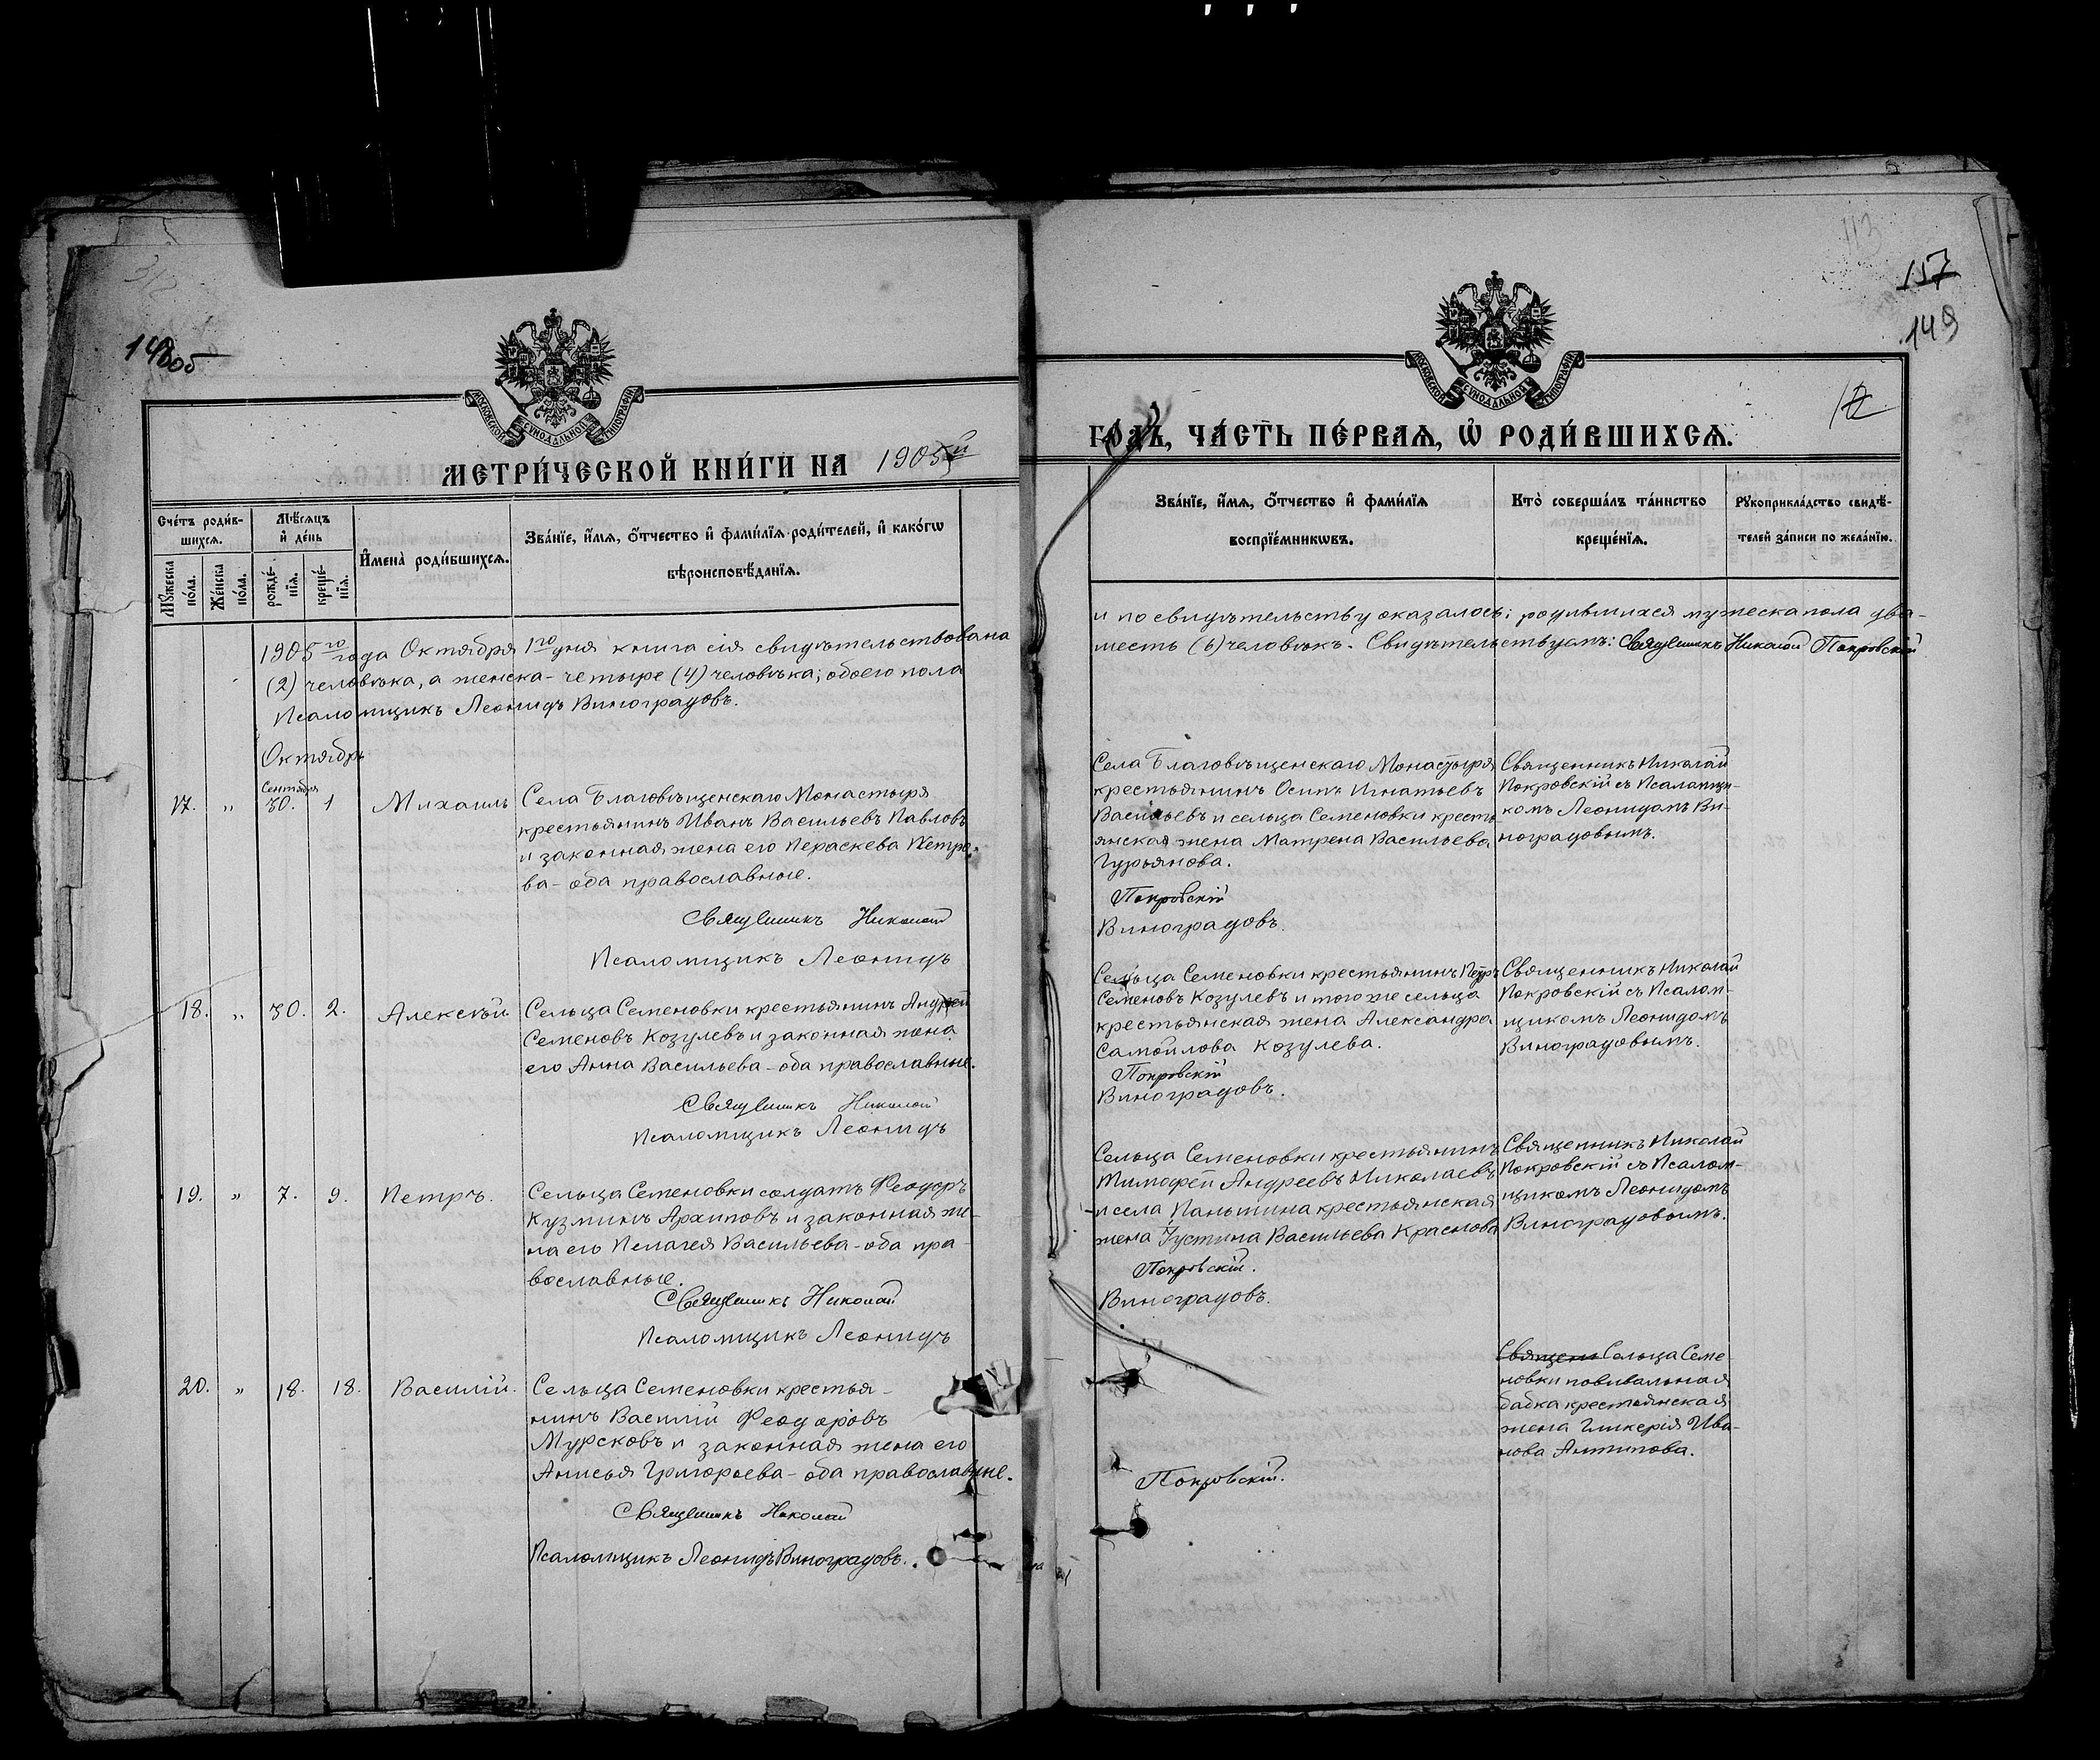 148об
157
149
12
МОСКОВСКОЙ СѴНОДАЛЬНОЙ ТИПОГРАФІИ
МОСКОВСКОЙ СѴНОДАЛЬНОЙ ТИПОГРАФІИ
МЕТРИ́ЧЕСКОЙ КНИ́ГИ НА 1905й ГОДЪ, ЧА́СТЬ ПЕ́РВАЯ, Ѡ҆ РОДИ́ВШИХСЯ.
Сче́тъ роди́в-
шихся.
Мѣ́сяцъ
и҆ де́нь
Мꙋ́жеска по́ла.
Же́нска по́ла.
рожде́-
нїя.
креще́-
нїя.
И҆мена̀ роди́вшихся.
Зва́нїе, и҆́мя, о҆́тчество и҆ фами́лїя роди́телей, и҆ како́гѡ
вѣроисповѣ́данїя.
Зва́нїе, и҆́мя, о҆́тчество и҆ фами́лїя
воспрїе́мникѡвъ.
Кто̀ соверша́лъ та́инство
креще́нїя.
Рꙋкоприкла́дство свидѣ́-
телей за́писи по жела́нїю.
1905го года Октября 1го дня книга сія свидѣтельствована
и по свидѣтельству оказалось: родившихся мужеска пола два-
(2) человѣка, а женска - четыре (4) человѣка; обоего пола
шесть (6) человѣкъ. Свидѣтельствуемъ: Священникъ Николай Покровскій
Псаломщикъ Леонидъ Виноградовъ.
Октябрь
Сентября
17. " 30. 1 Михаилъ
Села Благовѣщенскаго Монастыря
крестьянинъ Иванъ Васильевъ Павловъ
и законная жена его Пераскева Петро-
ва - оба православные.
Священникъ Николай
Псаломщикъ Леонидъ
Села Благовѣщенскаго Монастыря
крестьянинъ Осипъ Игнатьевъ
Васильевъ и сельца Семеновки кресть-
янская жена Матрена Васильева
Гурьянова.
Покровскій
Виноградовъ.
Священникъ Николай
Покровскій съ Псаломщи-
комъ Леонидомъ Ви-
ноградовымъ.
18. " 30. 2. Алексѣй
Сельца Семеновки крестьянинъ Андрей
Семеновъ Козулевъ и законная жена
его Анна Васильева - оба православные.
Священникъ Николай
Псаломщикъ Леонидъ
Сельца Семеновки крестьянинъ Петръ
Семеновъ Козулевъ и того же сельца
крестьянская жена Александра
Самойлова Козулева.
Покровскій
Виноградовъ.
Священникъ Николай
Покровскій съ Псалом-
щикомъ Леонидомъ
Виноградовымъ.
19. " 7. 9. Петръ.
Сельца Семеновки солдатъ Феодоръ
Кузминъ Архиповъ и законная же-
на его Пелагея Васильева - оба пра-
вославные.
Священникъ Николай
Псаломщикъ Леонидъ
Сельца Семеновки крестьянинъ
Тимофей Андреевъ Николаевъ
и села Паньшина крестьянская
жена Густина Васильева Краснова
Покровскій.
Виноградовъ.
Священникъ Николай
Покровскій съ Псалом-
щикомъ Леонидомъ
Виноградовымъ.
20. " 18. 18. Василій.
Сельца Семеновки крестья-
нинъ Василій Феодоровъ
Мурсковъ и законная жена его
Анисья Григорьева - оба православные.
Священникъ Николай
Псаломщикъ Леонидъ Виноградовъ.
Покровскій.
Священ Сельца Семе-
новки повивальная
бабка крестьянская
жена Гликерія Ива-
нова Антипова.